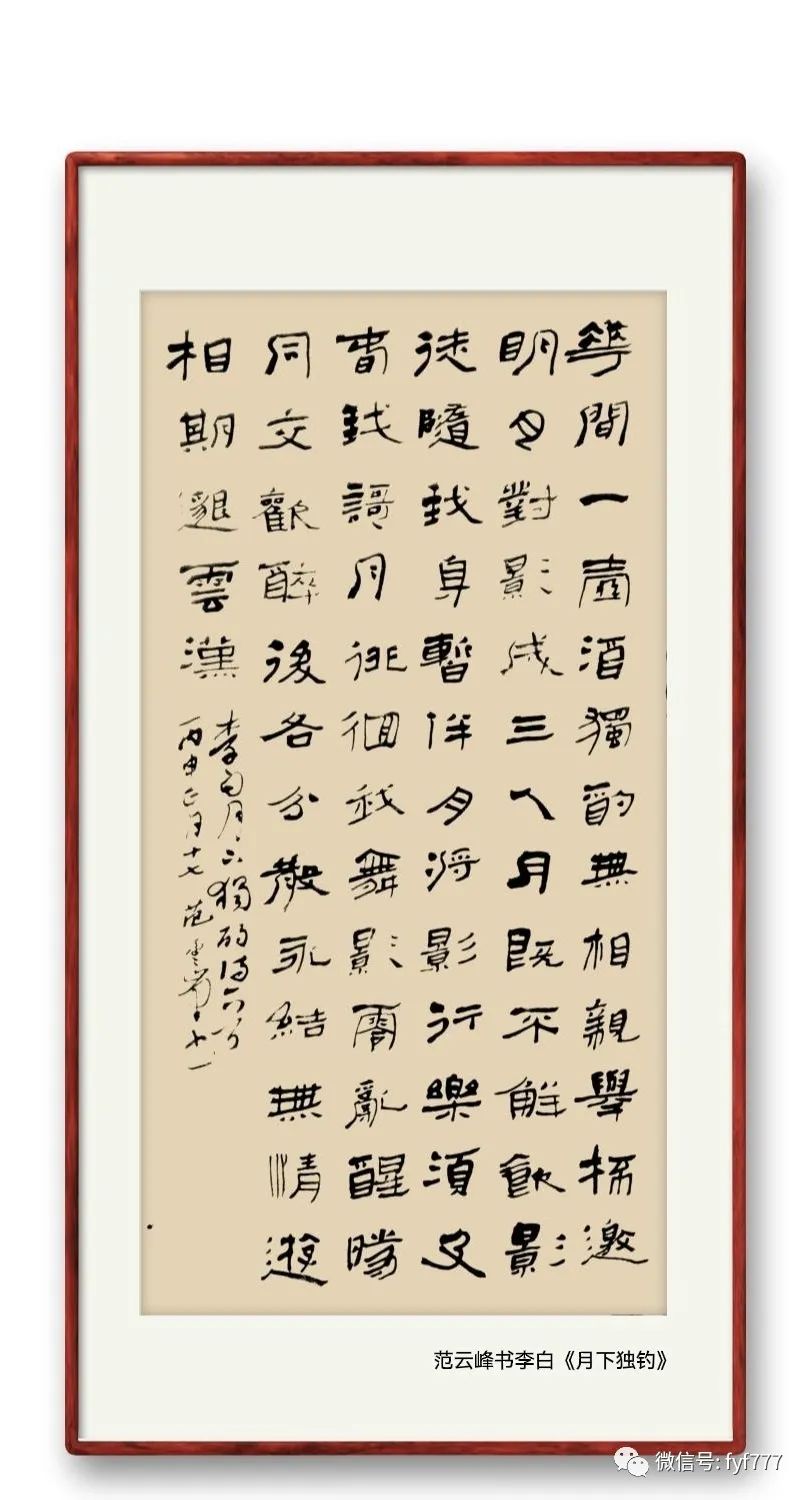 華間一壺酒獨酌無相親舉杯邀
明月對影成三人月既不解飲影
徒隨我身暫伴月將影行樂須及
春我謌月徘徊我舞影零亂醒時
同交歡醉後各分散永結無情遊
相期邈雲漢
李白月下獨酌詩
丙申正月十七 范雲峰
范云峰书李白《月下独钓》
微信号: fyf777